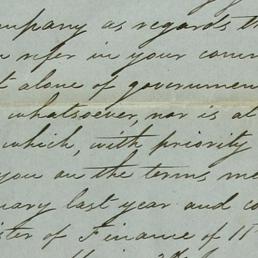 mpany as regards th
refer in your comm
t alone of governmen
whatsoever, nor is al
which, with priority
you on the terms me
uary last year and co
ister of Finance of 11